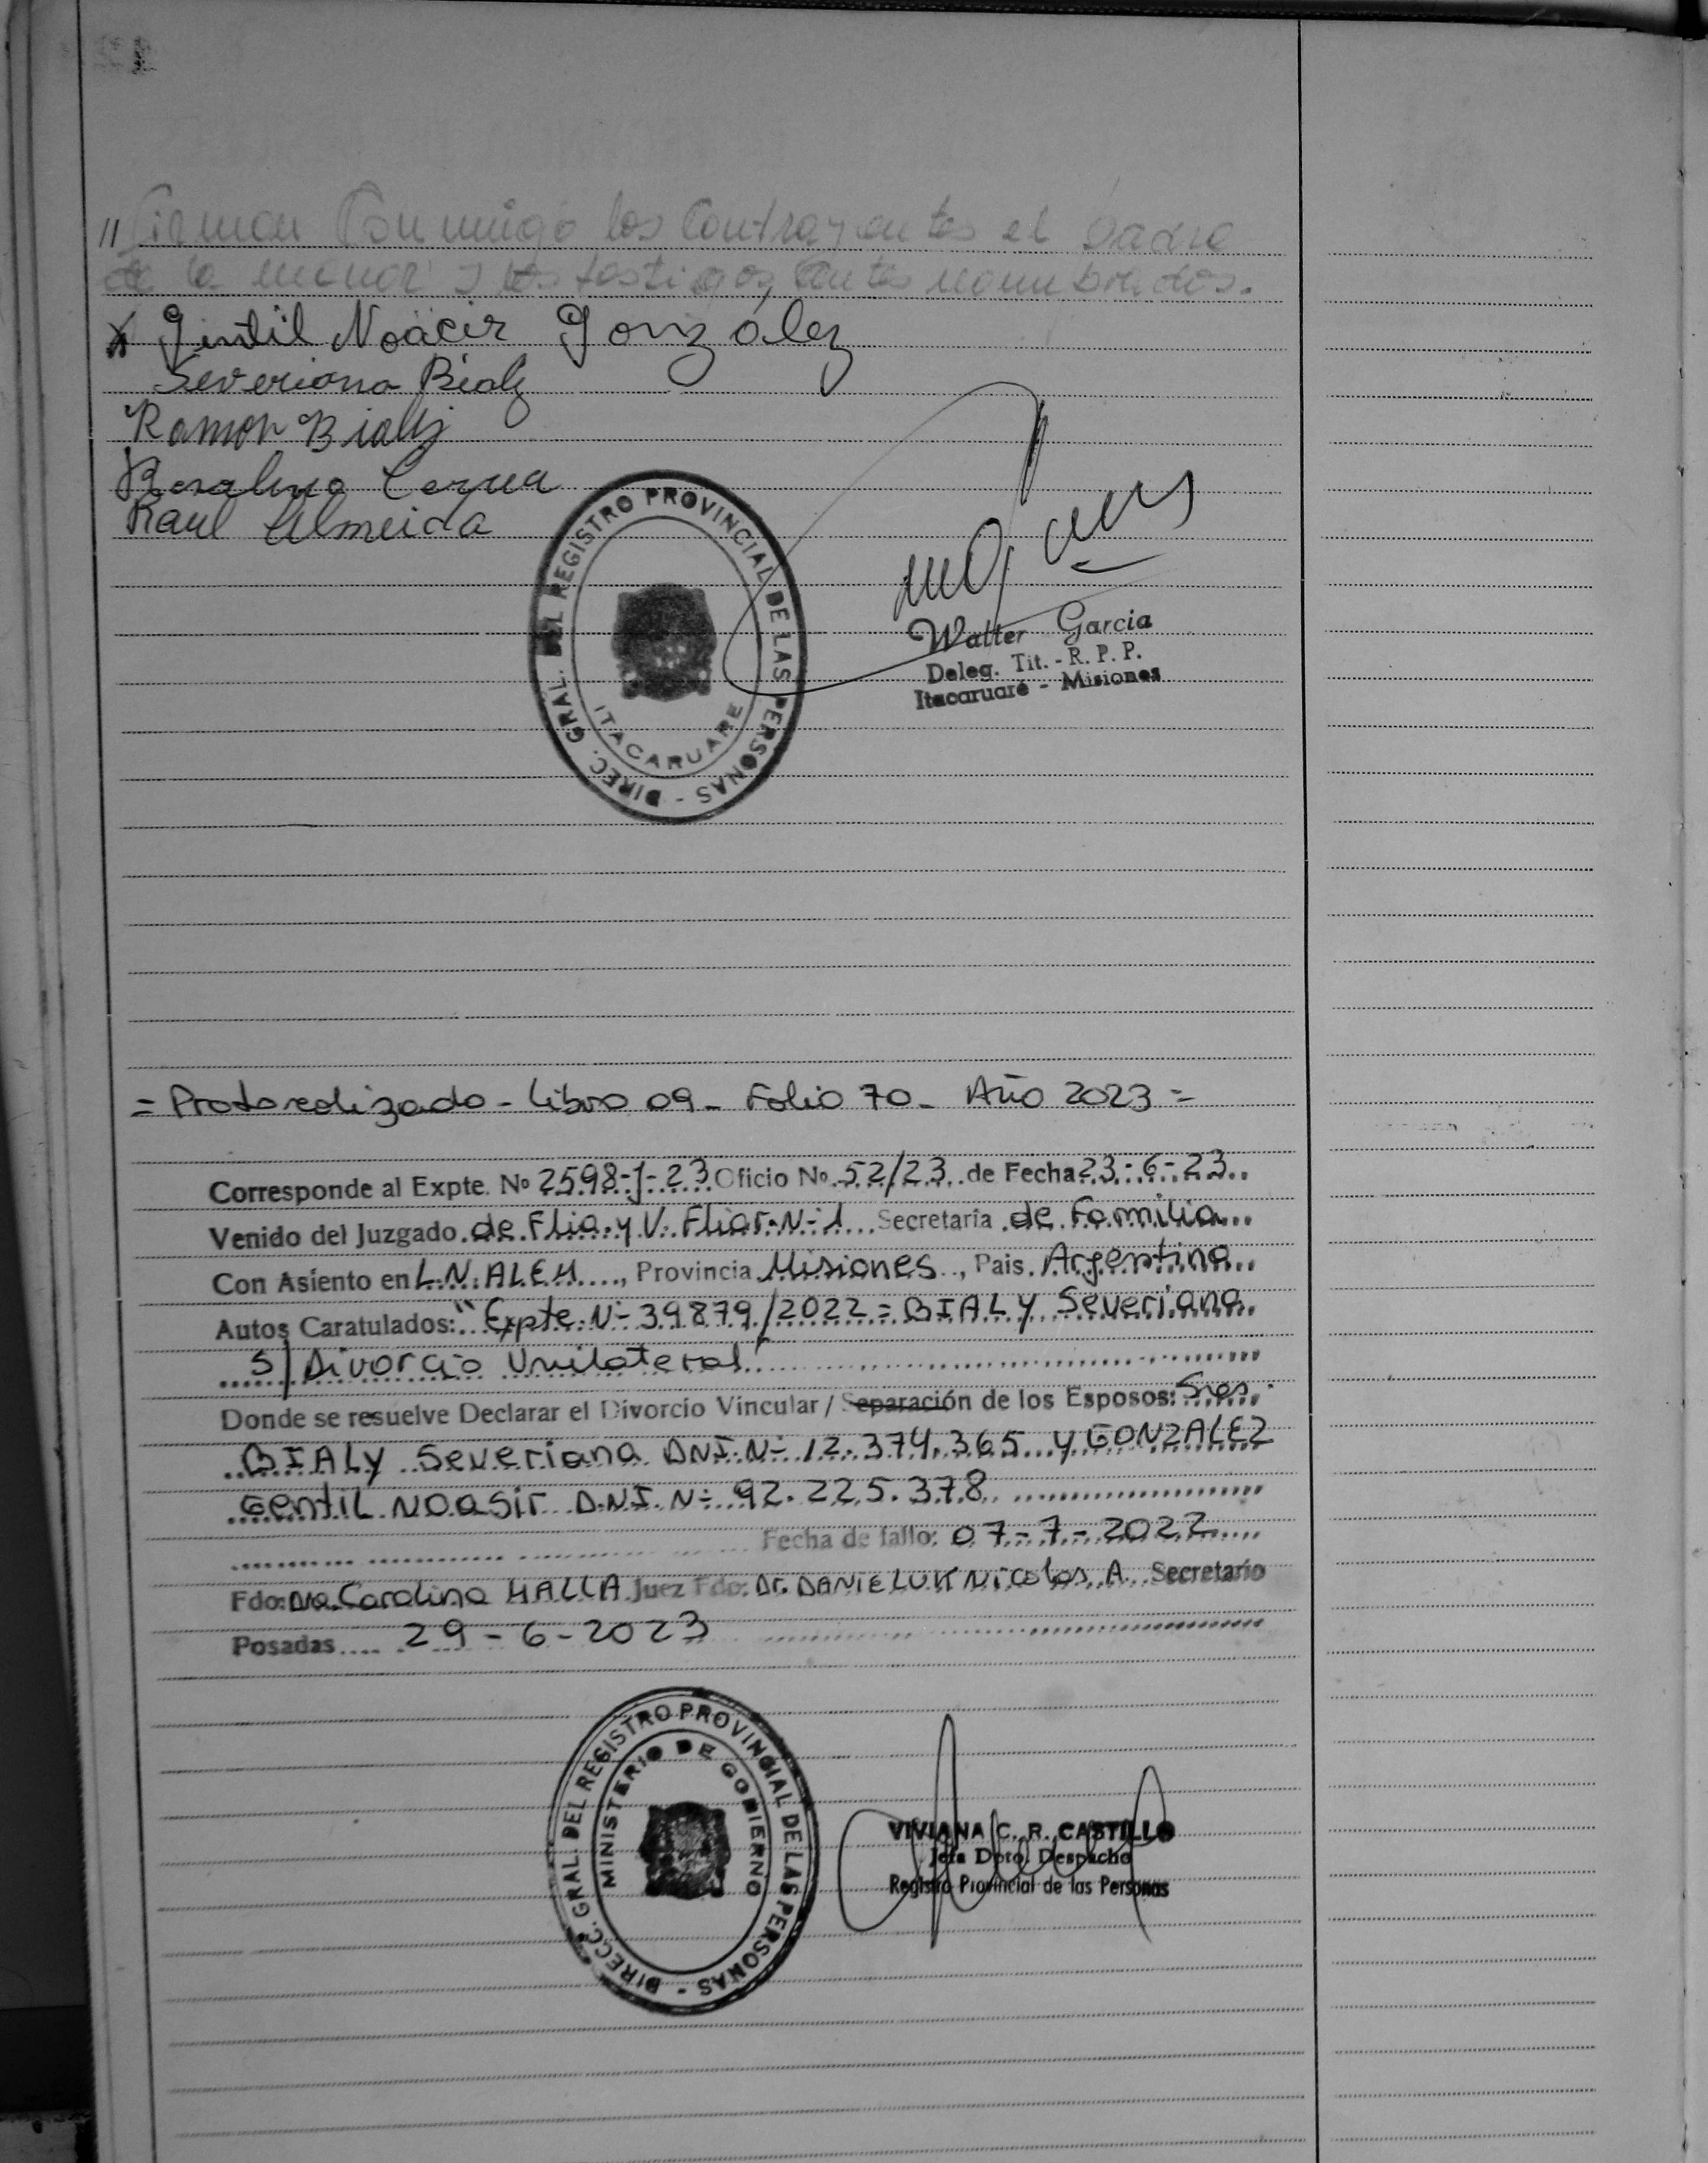 // Firman Conmigo los Contrayentes el Padre
de la menor y los testigos, antes nombrados.
Gintil Noácir González
Severiana Bialy
Ramon Bialy
Rosalino
Raul Almeida
DIREC. GRAL. DEL REGISTRO PROVINCIAL DE LAS PERSONAS -
ITACARUARE
Walter Garcia
Deleg. Tit. - R. P. P.
Itacaruaré - Misiones
= Protocolizado - Libro 09 - Folio 70 - Año 2023 =
Corresponde al Expte. Nº 2598-J-23 Oficio Nº 52/23 de Fecha 23-6-23
Venido del Juzgado de Flia. y V. Fliar. Nº 1 Secretaría de Familia
Con Asiento en L.N. ALEM, Provincia Misiones, Pais. Argentina
Autos Caratulados: "Expte. Nº 39879/2022 = BIALY Severiana
S/ Divorcio Unilateral"
Donde se resuelve Declarar el Divorcio Vincular / Separación de los Esposos: Sres.
BIALY Severiana DNI. Nº 12.374.365 y GONZALEZ
Gentil NOasir D.N.I. Nº 92.225.378
Fecha de fallo: 07-7-2022
Fdo: Dra. Carolina HALLA Juez Fdo: Dr. DANIELUK Nicolas A. Secretario
Posadas 29-6-2023
DIRECC. GRAL. DEL REGISTRO PROVINCIAL DE LAS PERSONAS -
MINISTERIO DE GOBIERNO
VIVIANA C. R. CASTILLO
Jefa Dpto. Despacho
Registro Provincial de las Personas